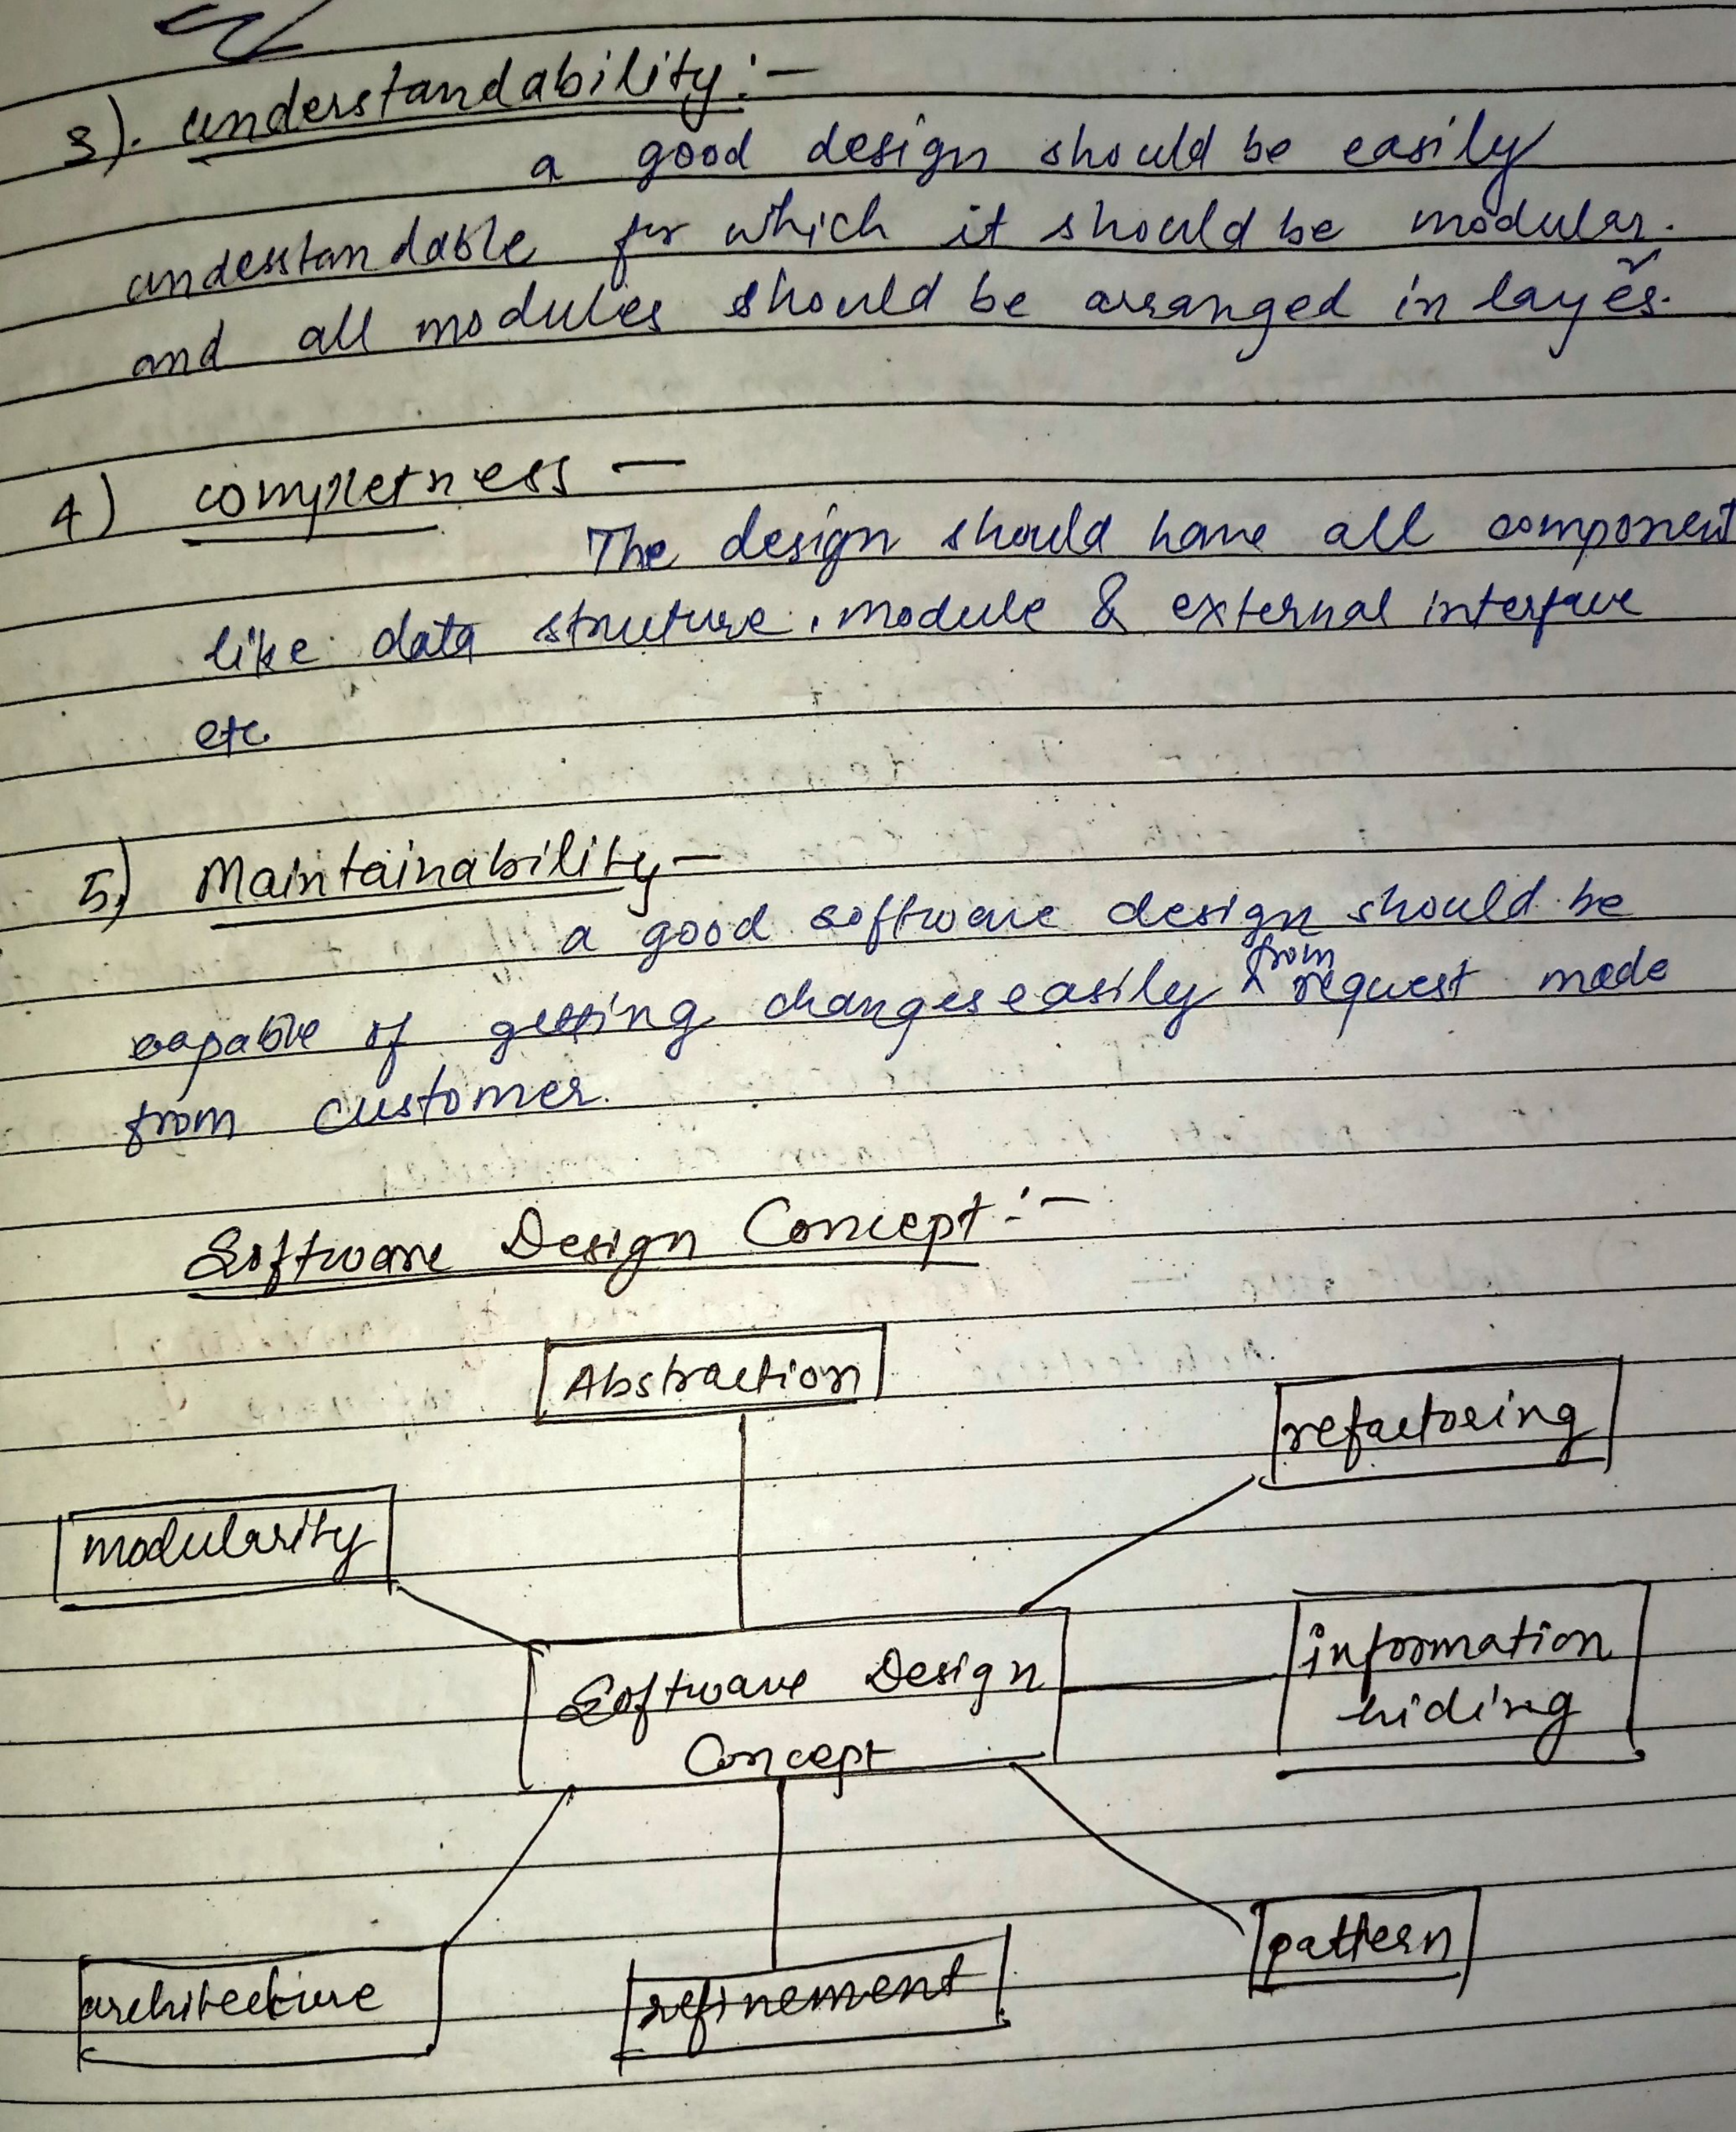 3). understandability:-
a good design should be easily
understandable for which it should be modular.
and all modules should be arranged in layers.
4) completness -
The design should have all component
like data struture, module & external interface
etc
5) Maintainability -
a good software design should be
capable of getting changes easily from request made
from customer.
Software Design Concept :-
Abstraction
refactoring
modularity
information
hiding
Software Design
Concept
pattern
architecture
refinement